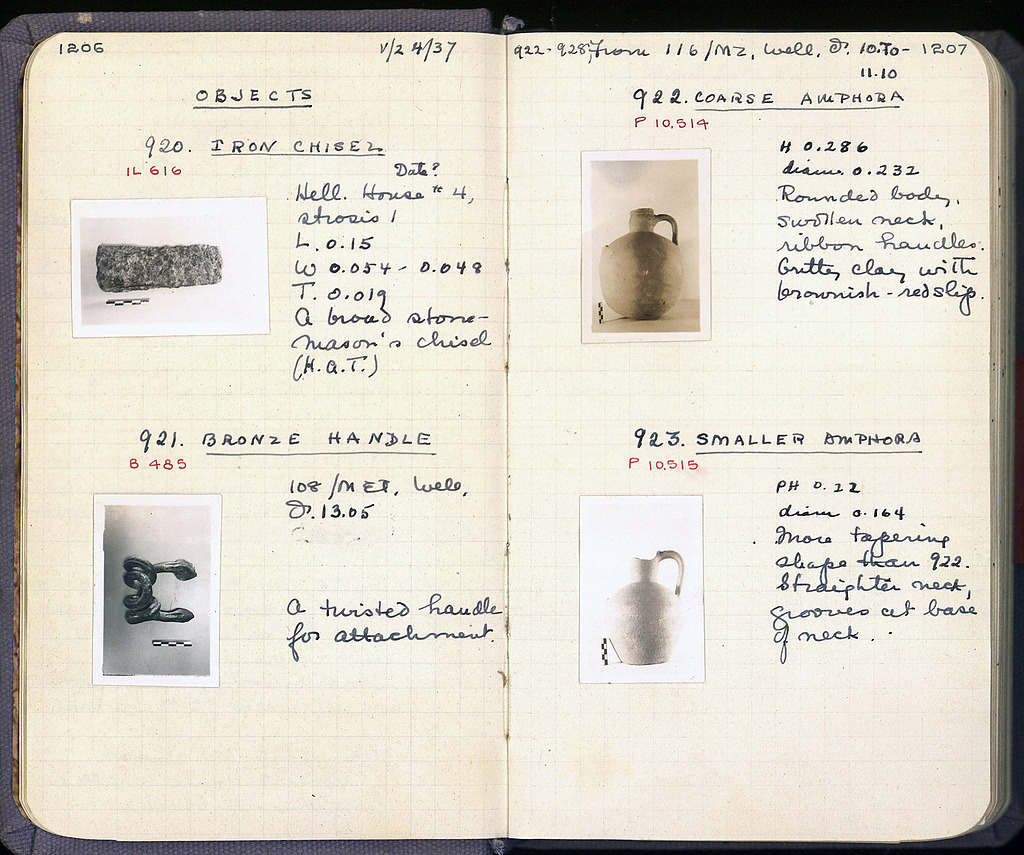 1206
V/24/37
OBJECTS
920. IRON CHISEL
IL 616
Date?
Hell. House # 4,
strosis 1
L. 0.15
W 0.054 - 0.048
T. 0.019
A broad stone-
mason's chisel
(H.A.T.)
921. BRONZE HANDLE
B 485
Well,
D. 13.05
A twisted handle
for attachment.
922-928, from 116/MZ, Well, D. 10.70- 1207
11.10
922. COARSE AMPHORA
P 10,514
H 0.286
diam. 0.232
Rounded body,
swollen neck,
ribbon handles.
Gritty clay with
brownish-red slip.
923. SMALLER AMPHORA
P 10,515
PH 0.22
diam 0.164
More tapering
shape than 922.
Straighter neck,
grooves at base
of neck.